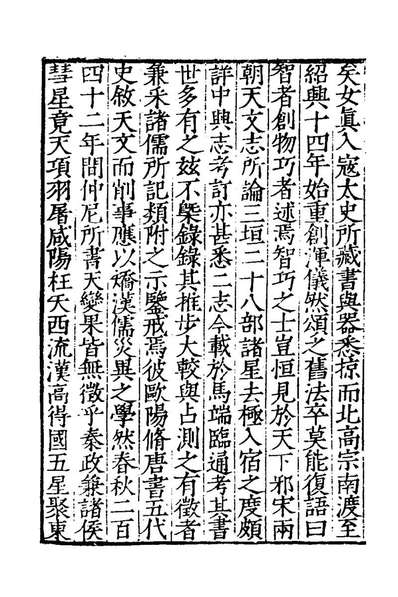 矣女眞入寇太史所藏書與器悉掠而北高宗南渡至
紹興十四年始重創渾儀然頌之舊法卒莫能復語曰
智者創物巧者述焉智巧之士豈恒見於天下邪宋兩
朝天文志所論三垣二十八部諸星去極入宿之度頗
詳中興志考訂亦甚悉二志今載於馬端臨通考其書
世多有之兹不槩錄錄其推步大較與占測之有徵者
兼采諸儒所記類附之示鑒戒焉彼歐陽脩唐書五代
史敘天文而削事應以矯漢儒災異之學然春秋二百
四十二年間仲尼所書天變果皆無徵乎秦政兼諸侯
彗星竟天項羽屠咸陽枉矢西流漢高得國五星聚東